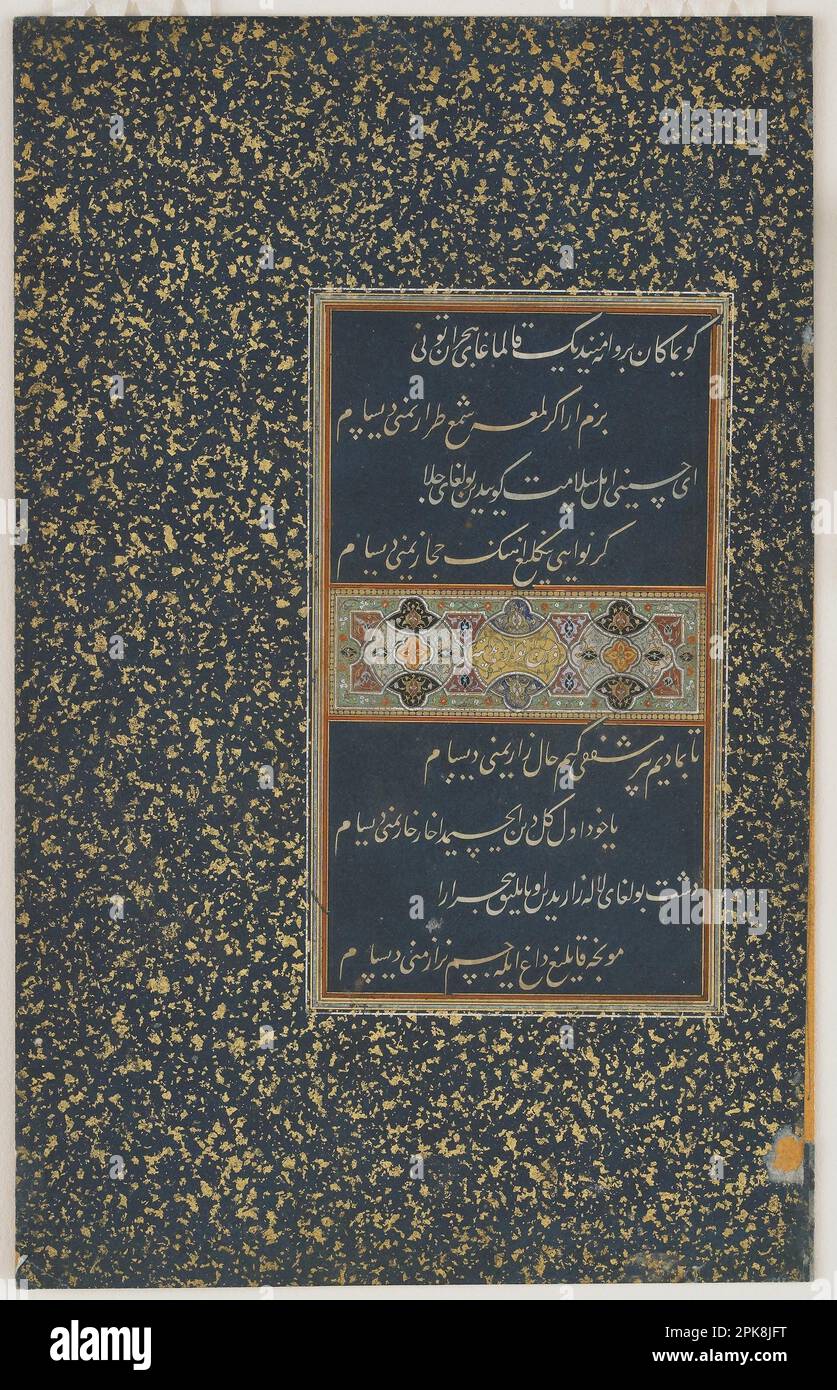 کویماکان پروانه نینك قالماغای هجران تونی
بزم ارا کر لمعه شمع طرازیمنی دیسام
ای حسینی اهل سلامت کویدین بولغای جلا
کر نوایی یکلیغ انینك حجازیمنی دیسام
تابمادیم بر مشفقی کیم حال زاریمنی دیسام
یا خود اول کل دین ایچیمدا خار خاریمنی دیسام
دشت بولغای لاله زاریدین اویاتلیق هجر ارا
مونجه قانلیغ داغ ایله جسم نزارمنی دیسام
alamy
a
Image ID: 2PK8JFT
www.alamy.com